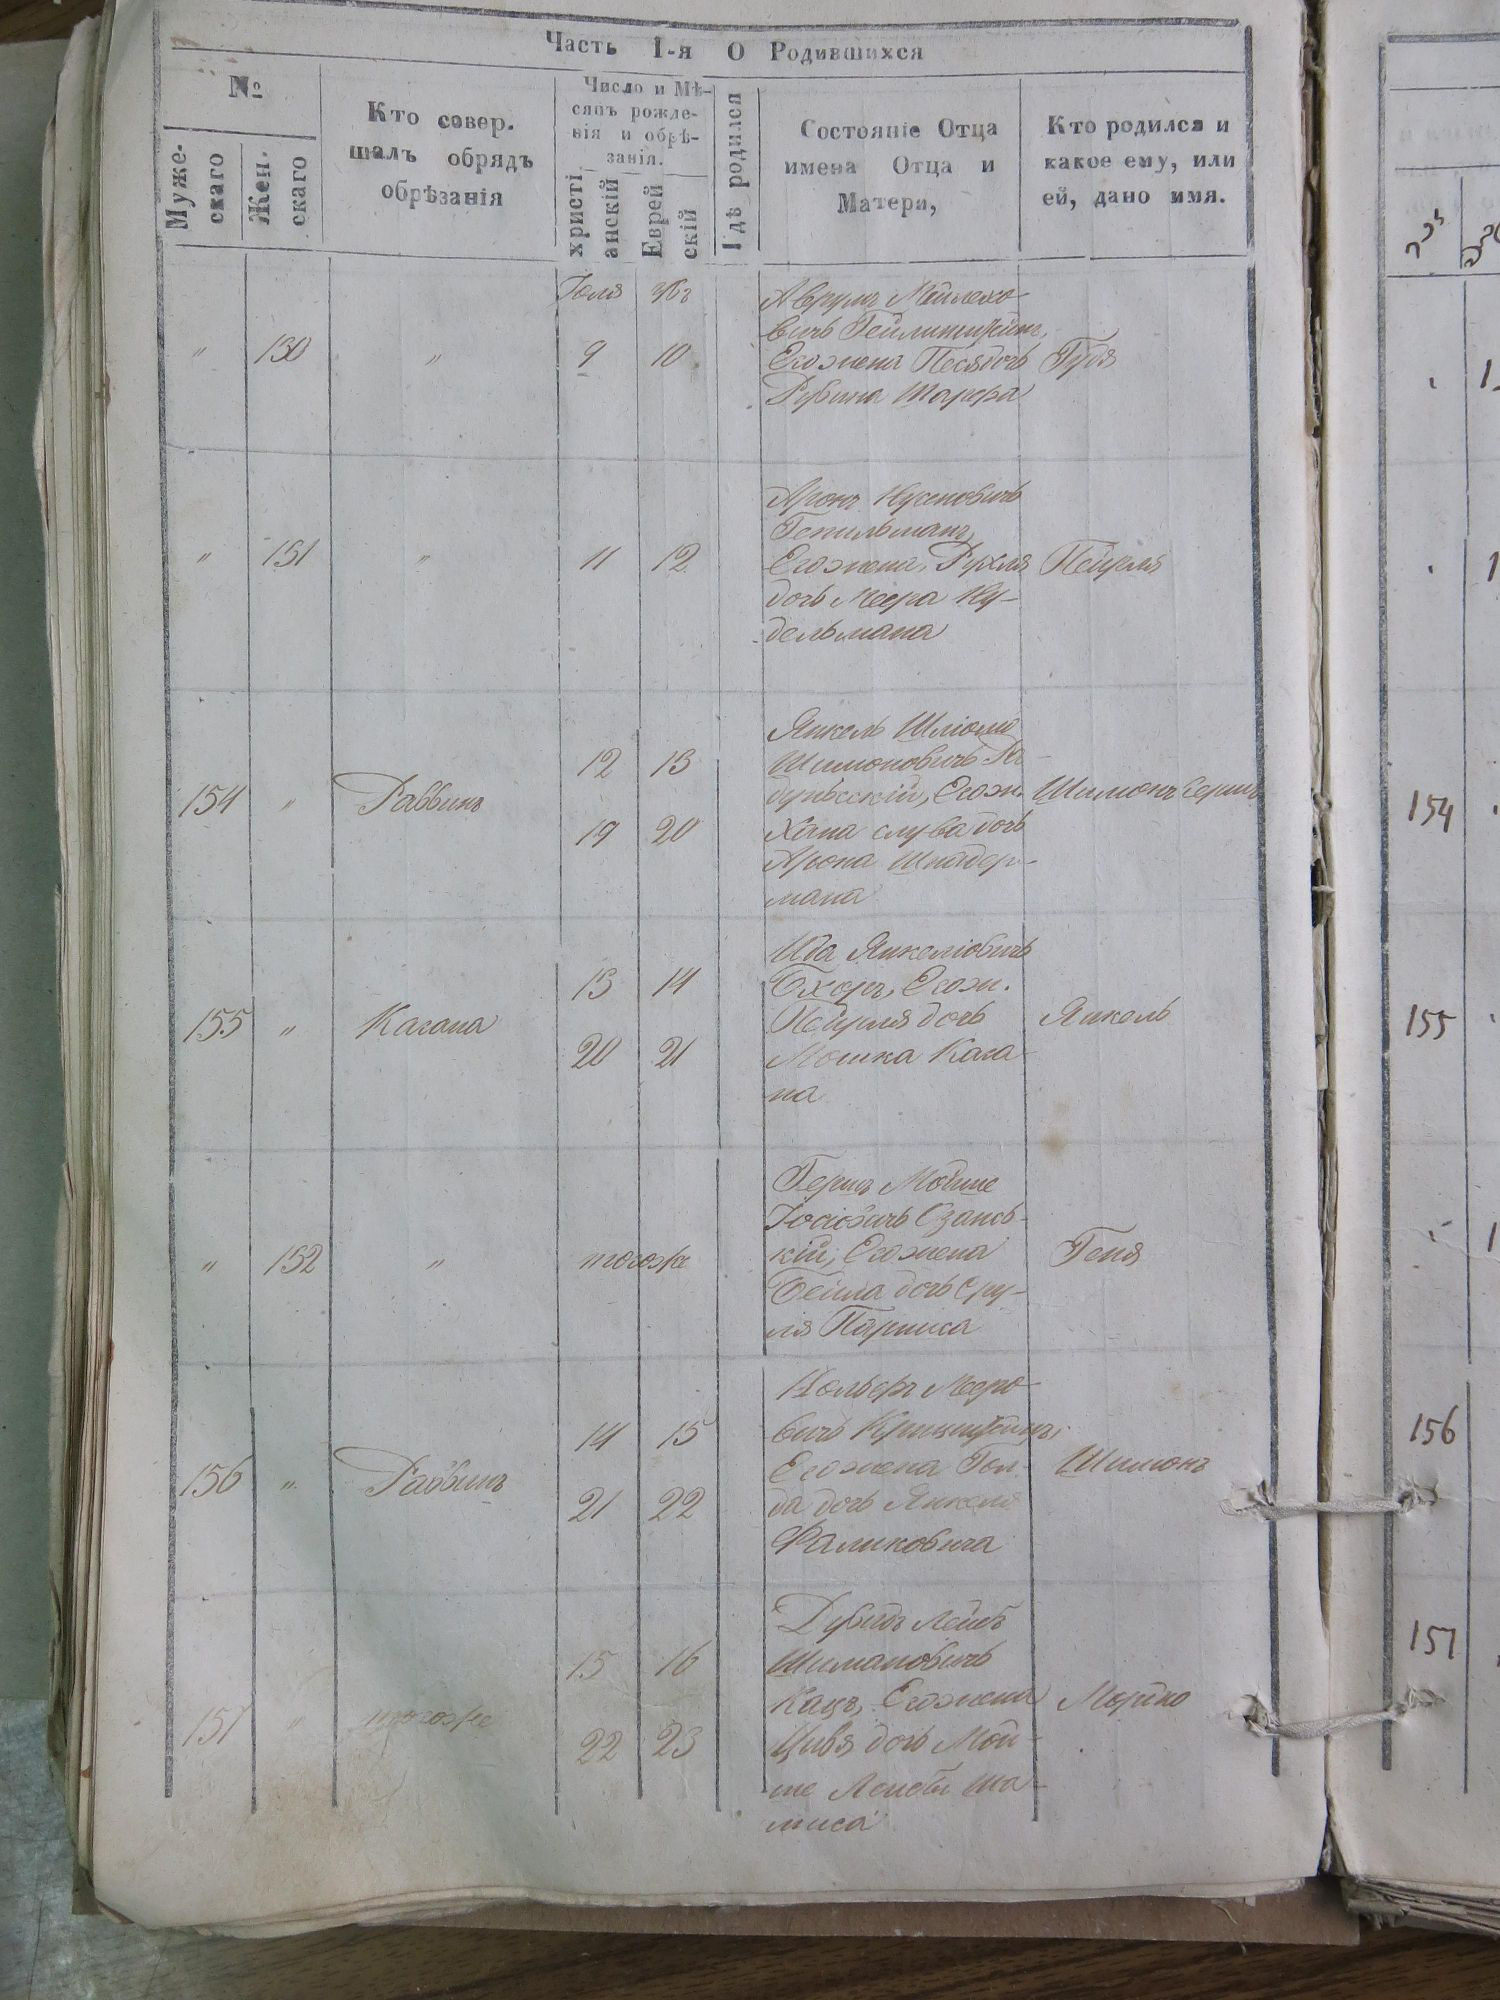 Часть 1-я О Родившихся
№
Муже-
скаго
Жен-
скаго
Кто совер.
шалъ обрядъ
обрѣзанія
Число и Мѣ-
сяцъ рожде-
нія и обрѣ-
занія.
христі
анскій
Еврей
скій
Гдѣ родился
Состояніе Отца
имена Отца и
Матери,
Кто родился и
какое ему, или
ей, дано имя.
Іюля
" 150 " 9 10
Аврумъ Мейлехо-
вичъ
Его жена Песя дочь
Рувина Шарфа
" 151 " 11 12
Аронъ Нусеновичъ
Гепильманъ,
Его жена, Рухля
дочь Меера Ку-
дельмана
Пейсля
154 " Раввинъ
12 13
19 20
Янкель Шліома
Шимоновичъ
Его ж.
Хана слува дочь
Арона Шнадер-
мана
Шимонъ
155 " Кагана
13 14
20 21
Ида Янкеліовичъ
Бхоръ, Его ж.
Пейсля дочь
Мошка Кага-
на
Янкель
" 152 " тогоже
Герцъ Мойше
Іосіовичъ
кій, Его жена
Бейла дочь Сру-
ля Парниса
Геня
156 " Раввинъ
14 15
21 22
Мееро-
вичъ
Его жена Гол-
да дочь Янкеля
Фаликовича
Шимонъ
157 " тогоже
15 16
22 23
Дувидъ Лейбъ
Шимановичъ
Кацъ, Его жена
Цивя дочь Мой-
ше Лейбы Ша-
миса
Мордко
154
155
156
157